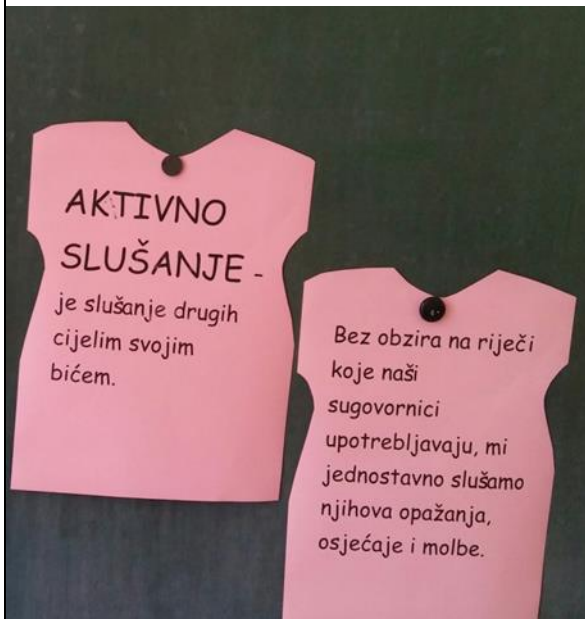 AKTIVNO
SLUŠANJE -
je slušanje drugih
cijelim svojim
bićem.
Bez obzira na riječi
koje naši
sugovornici
upotrebljavaju, mi
jednostavno slušamo
njihova opažanja,
osjećaje i molbe.